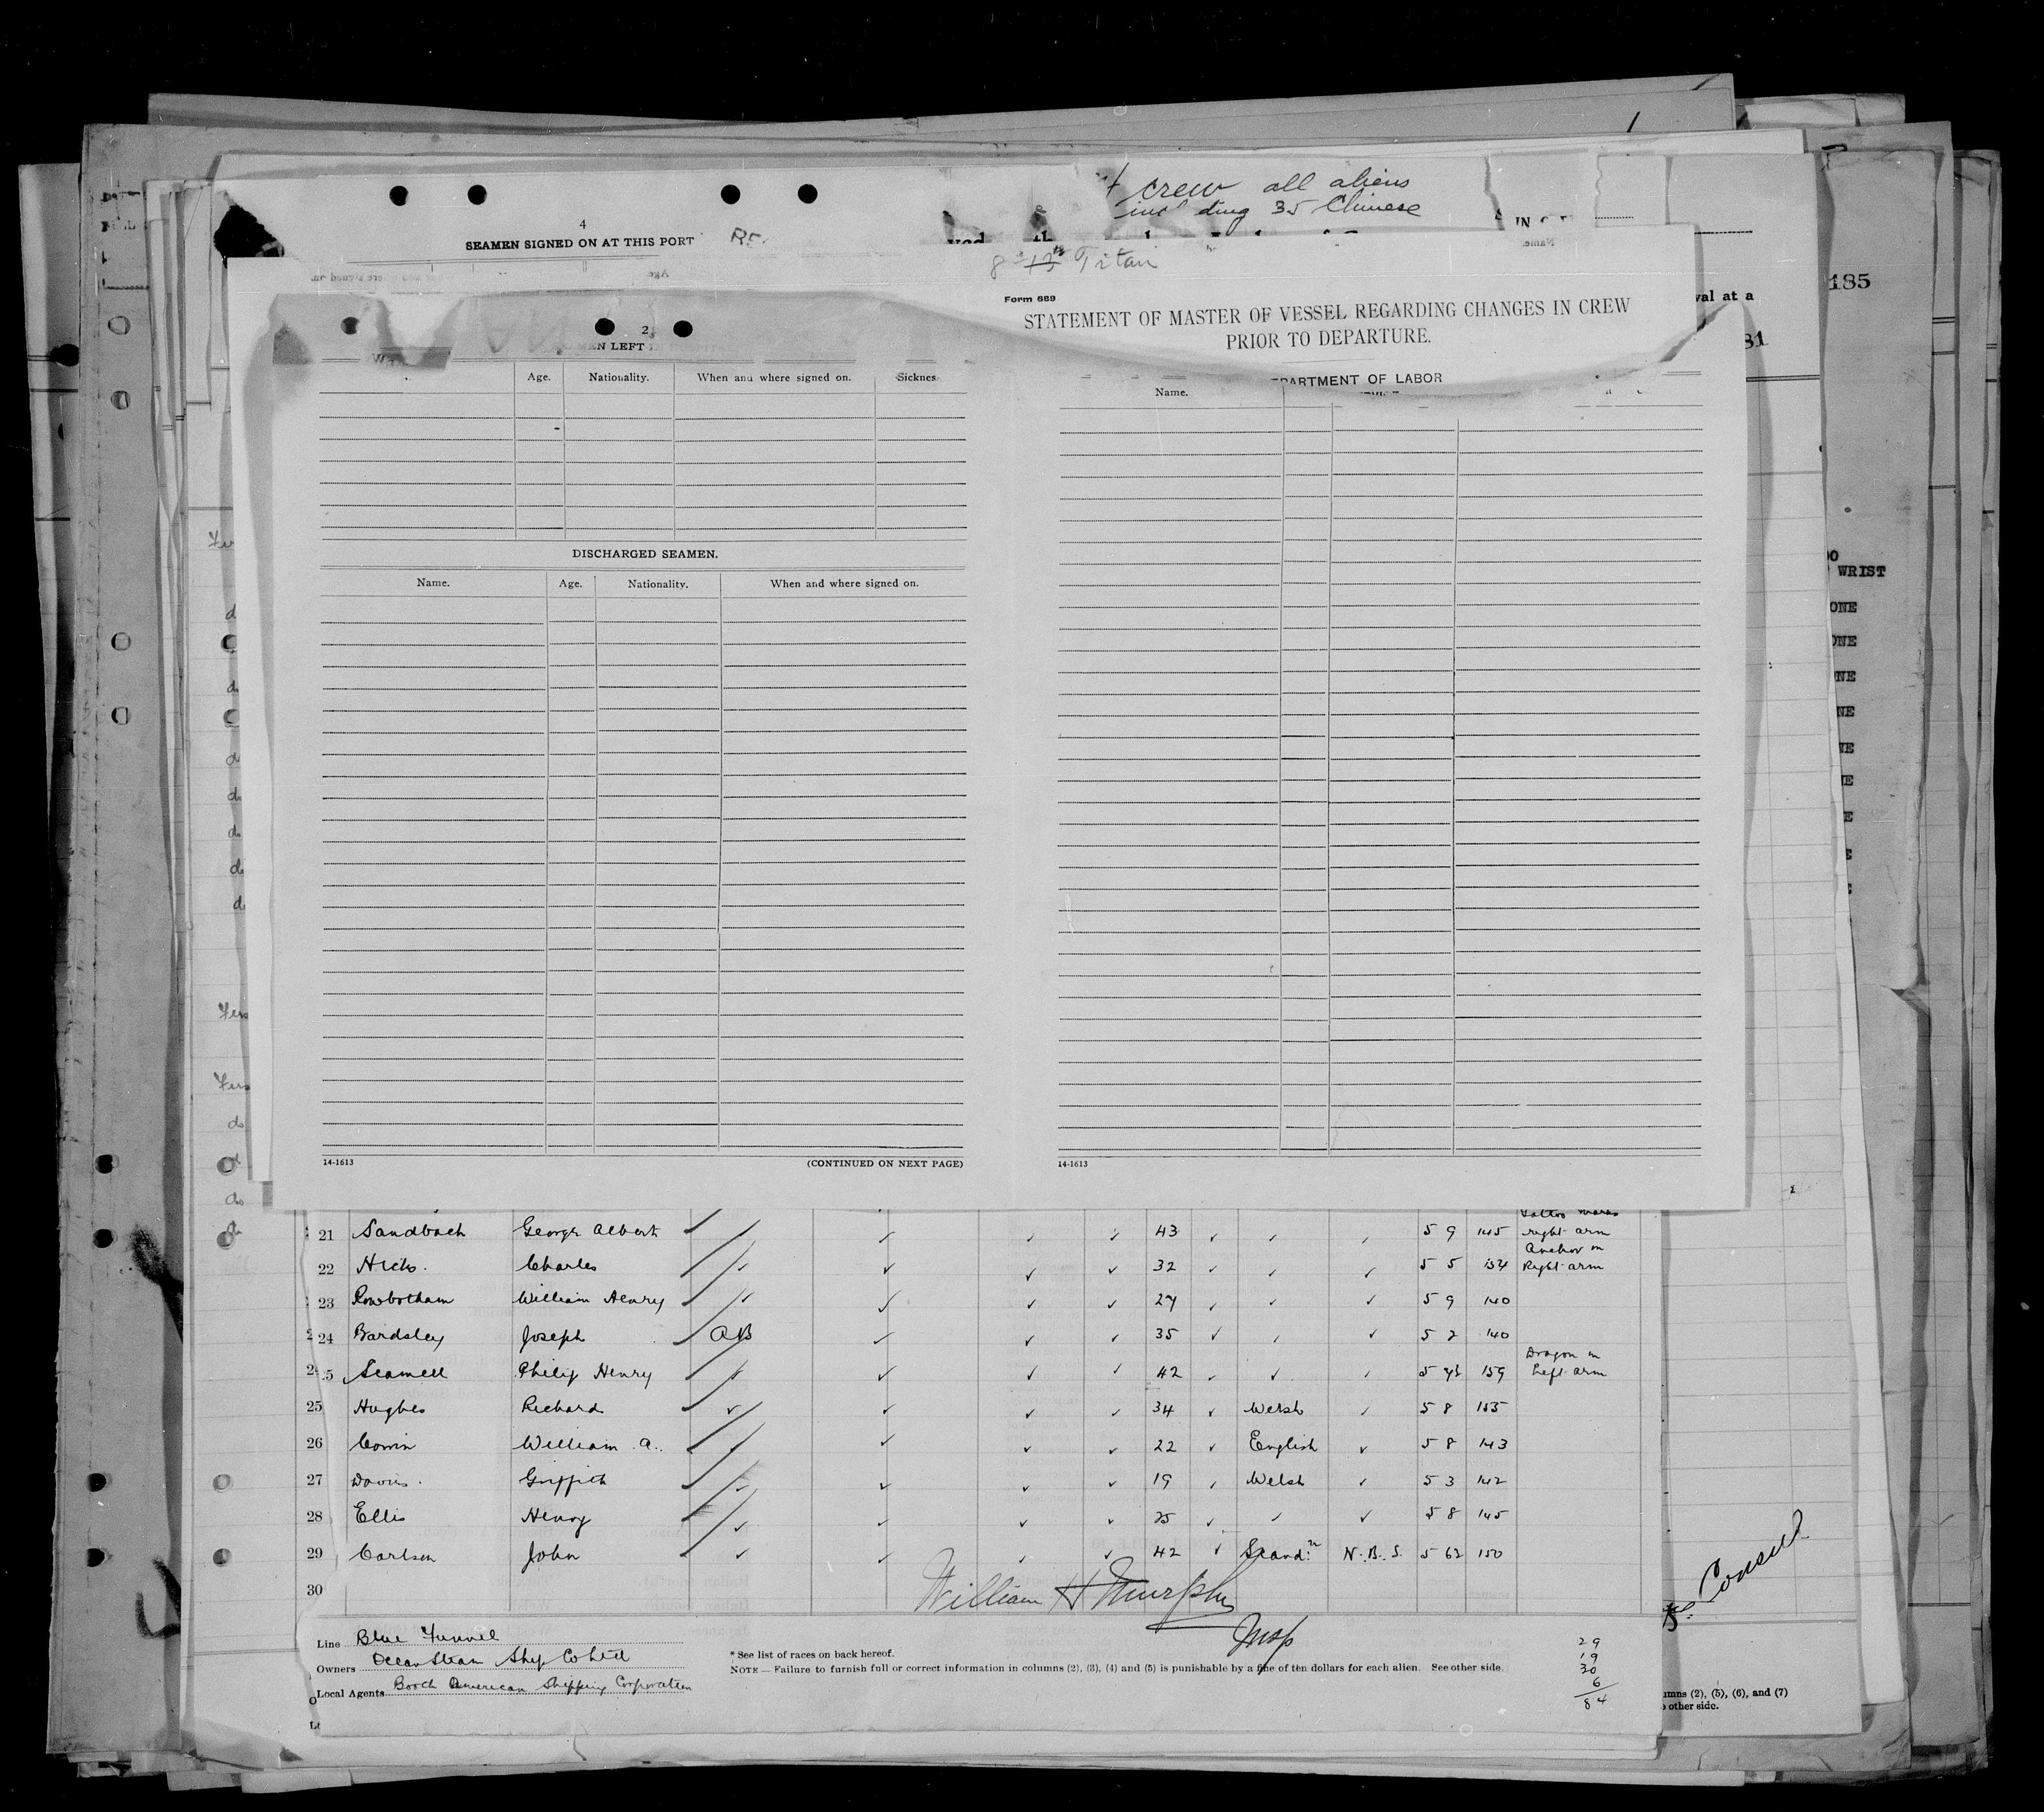 crew all aliens
including 35 Chinese
4
SEAMEN SIGNED ON AT THIS PORT
Titan
185
Form 689
STATEMENT OF MASTER OF VESSEL REGARDING CHANGES IN CREW
PRIOR TO DEPARTURE.
val at a
81
2
EN LEFT
PARTMENT OF LABOR
Age. Nationality. When and where signed on. Sicknes
Name.
DISCHARGED SEAMEN.
Name. Age. Nationality. When and where signed on.
WRIST
ONE
ONE
NE
NE
NE
E
E
E
14-1613 (CONTINUED ON NEXT PAGE) 14-1613
21 Sandbach George Albert 43 5 9 145 right arm
22 Hicks. Charles 32 5 5 134 Anchor on Right arm
23 Rowbotham William Henry 27 5 9 140
24 Bardsley Joseph AB 35 5 2 140
5 Philip Henry 42 159 Dragon on Left arm
25 Hughes Richard 34 Welsh 5 8 155
26 William A. 22 English 5 8 143
27 Davies. Griffith 19 Welsh 5 3 142
28 Ellis Henry 25 5 8 145
29 Carlson John 42 Scand:n N.B.S. 150
30
William H Murphy
Insp
Consul
Line Blue Funnel
Owners Ocean Steam Ship Co Ltd
Local Agents Booth American Shipping Corporation
* See list of races on back hereof.
NOTE — Failure to furnish full or correct information in columns (2), (3), (4) and (5) is punishable by a fine of ten dollars for each alien. See other side.
29
19
30
6
84
umns (2), (5), (6), and (7)
other side.